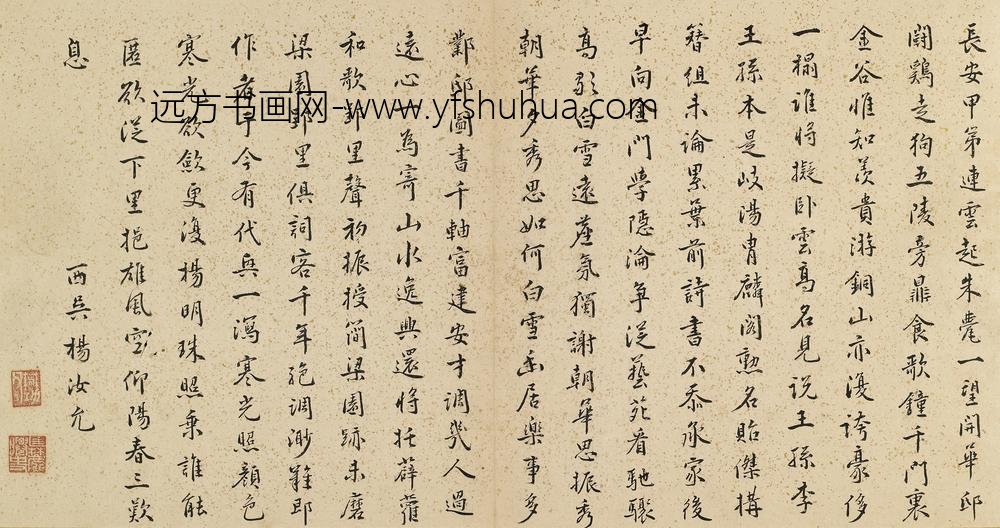 長安甲第連雲起朱甍一望開華邸
鬪鷄走狗五陵旁鼎食歌鐘千門裏
金谷惟知羨貴游銅山亦復誇豪侈
一榻誰將擬卧雲高名見說王孫李
王孫本是岐陽胄麟閣勲名貽傑搆
簪組未論累葉前詩書不忝承家後
早向金門學隱淪爭從藝苑看馳驟
高歌白雪遠塵氛獨謝朝華思振秀
朝華夕秀思如何白雪幽居樂事多
鄴邸圖書千軸富建安才調幾人過
遠心為寄山水逸興還將托薜蘿
和歌郢里聲初振授簡梁園跡未磨
梁園郢里俱詞客千年絕調渺難即
作者於今有代興一瀉寒光照顏色
寒光欲歛更復楊明珠照乗誰能
匿欲從下里挹雄風空仰陽春三歎
息
西吳楊汝允
远方书画网-www.yfshuhua.com